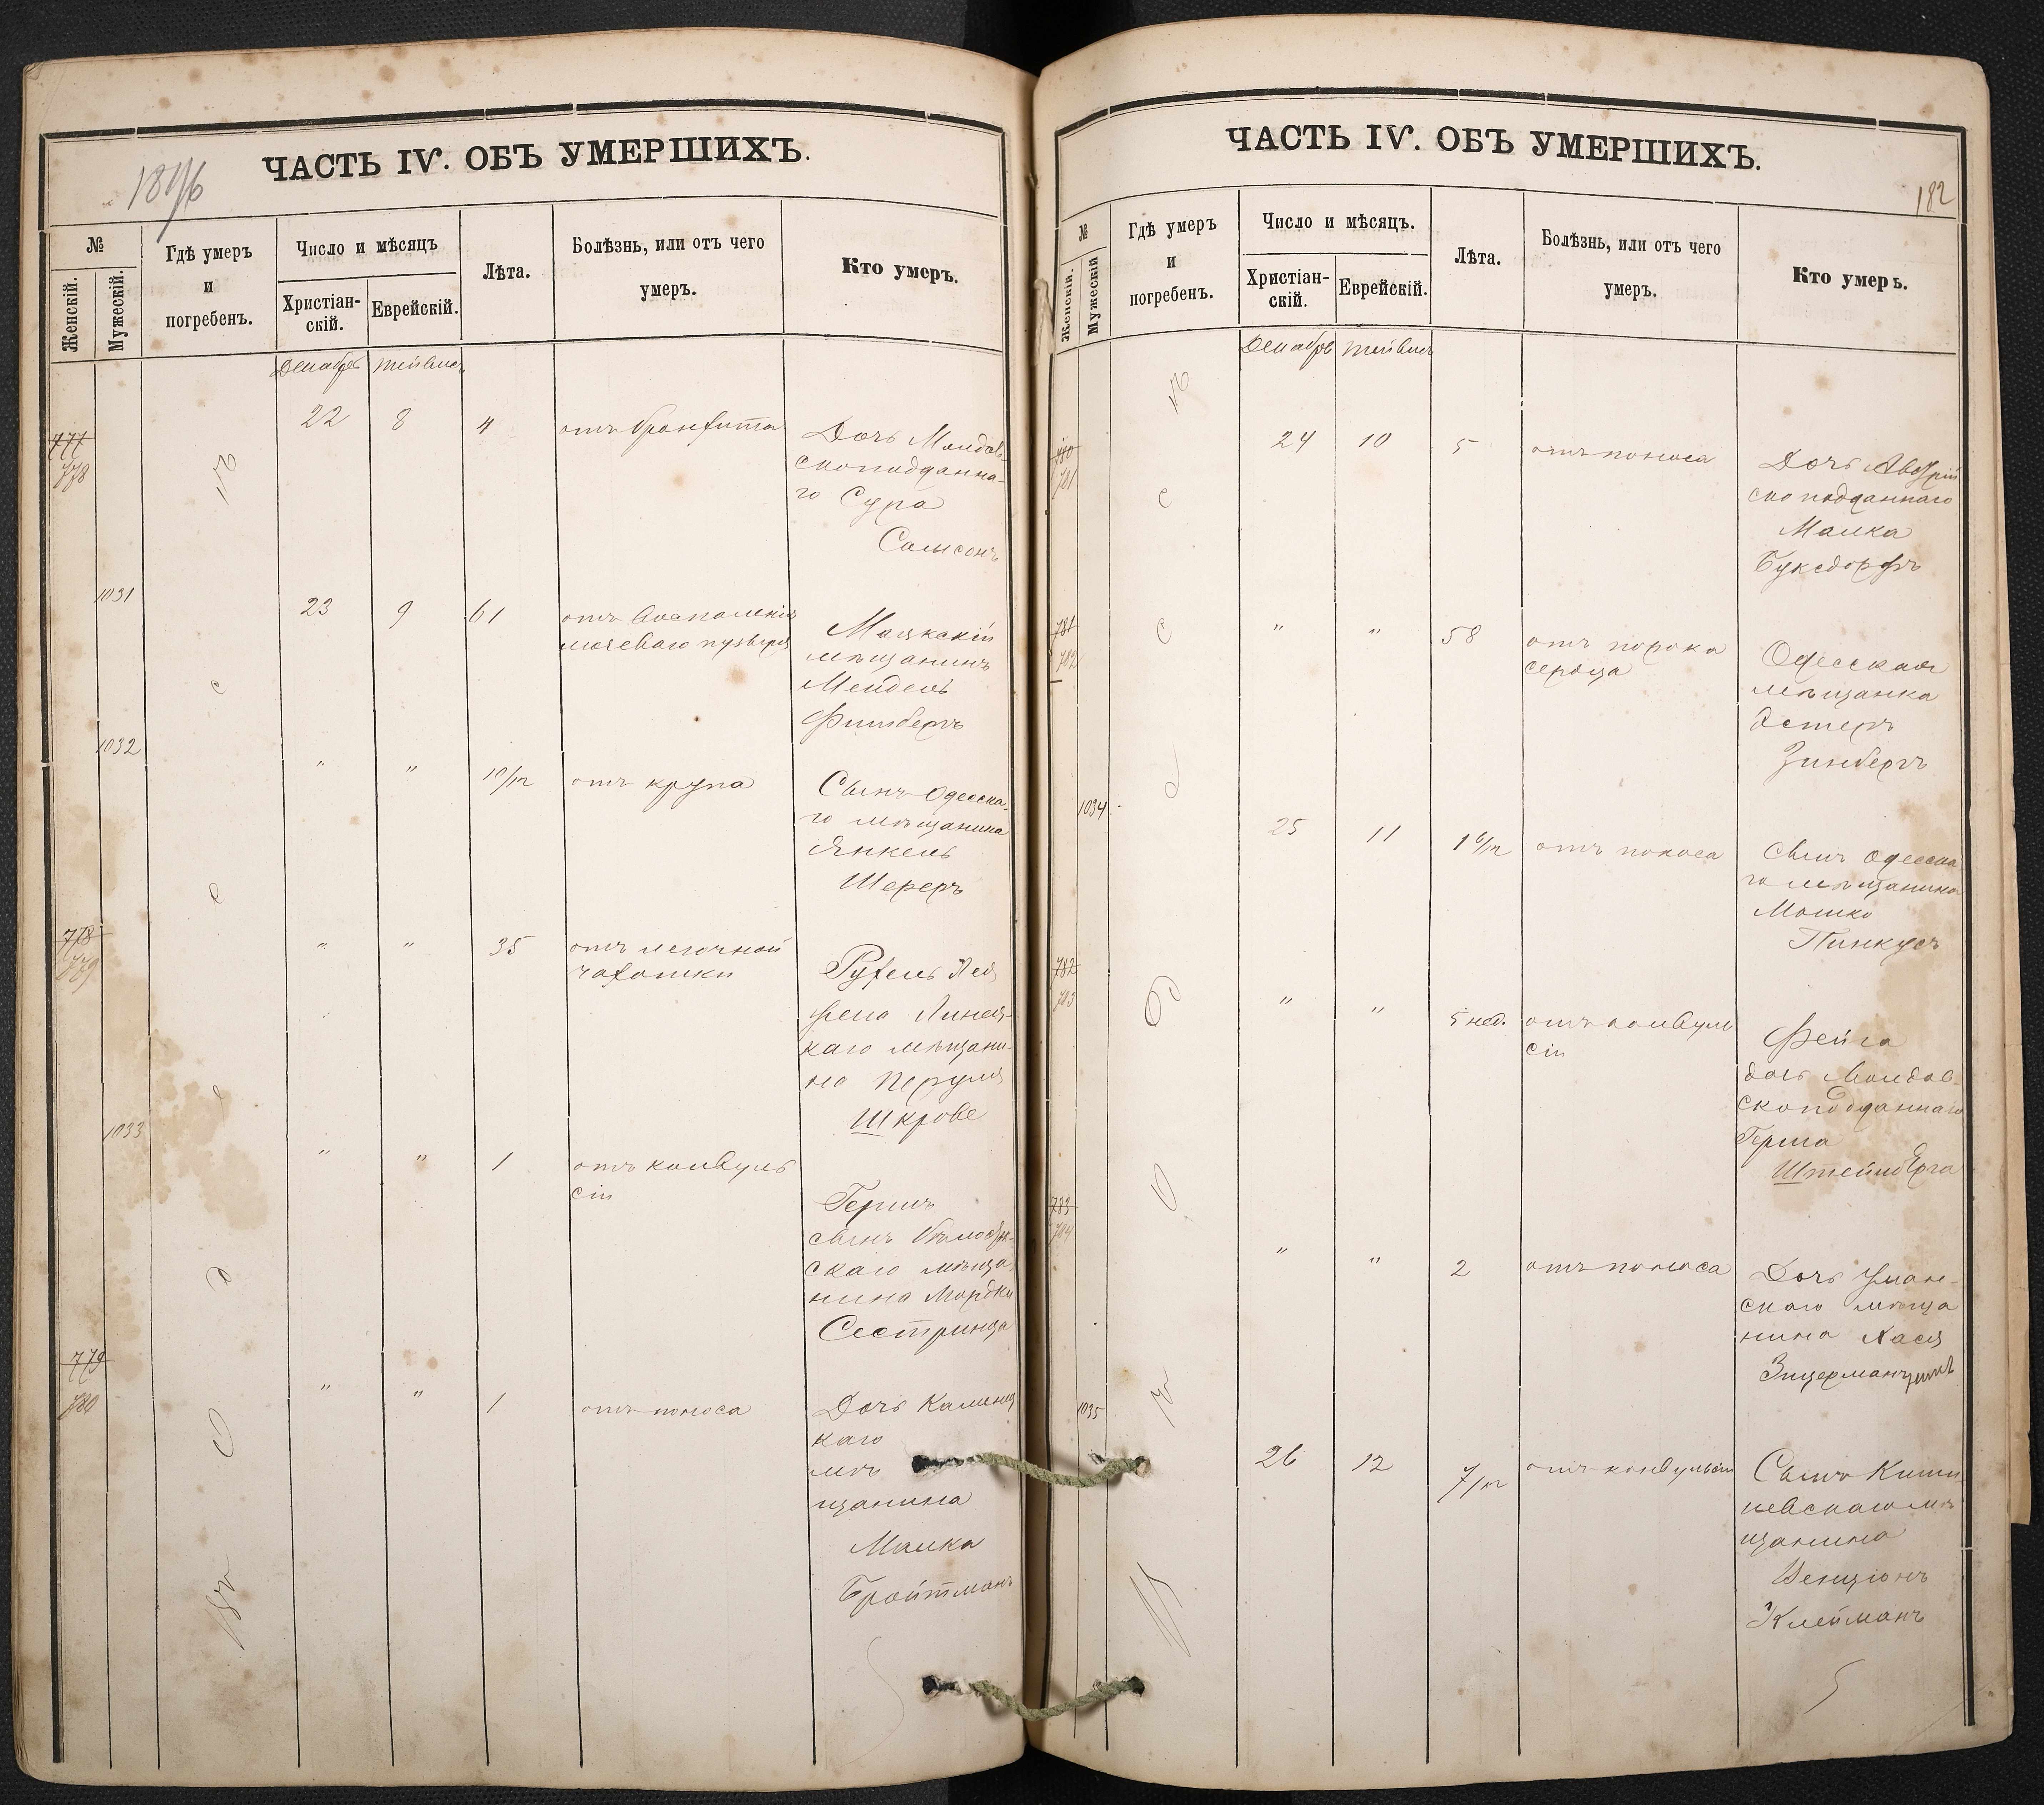 ЧАСТЬ IV. ОБЪ УМЕРШИХЪ.
1876
№
Женскій.
Мужескій.
Гдѣ умеръ
и
погребенъ.
Число и мѣсяцъ
Христіан-
скій.
Еврейскій.
Лѣта.
Болѣзнь, или отъ чего
умеръ.
Кто умеръ.
Декабрь Тейвисъ
777
778
22 8 4 отъ бронхита
Дочь Молдав-
скоподданна-
го Сура
Самсонъ
1031
23 9 61 отъ воспаленія
мочеваго пузыря
Маякскій
мѣщанинъ
Мендель
Фишбергъ
1032
" " 10/м отъ крупа
Сынъ Одесска-
го мѣщанина
Янкель
Шереръ
778
779
" " 35 отъ легочной
чахотки
Рухель
жена
каго мѣщани-
на
Шкрове
1033
" " 1 отъ конвуль
сіи
Гершъ
сынъ
скаго мѣща
нина Мордки
Сестринца
779
780
" " 1 отъ поноса
Дочь Каменец
каго
мѣ
щанина
Малка
Бройтманъ
въ
О
д
е
с
с
ѣ
ЧАСТЬ IV. ОБЪ УМЕРШИХЪ.
182
№
Женскій.
Мужескій
Гдѣ умеръ
и
погребенъ.
Число и мѣсяцъ.
Христіан-
скій.
Еврейскій.
Лѣта.
Болѣзнь, или отъ чего
умеръ.
Кто умеръ.
Декабрь Тейвисъ
780
781
24 10 5 отъ поноса
Дочь Австрій
скоподданнаго
Малка
Буксдорфъ
781
782
" " 58 отъ порока
сердца
Одесская
мѣщанка
Эстеръ
Зинбергъ
1034
25 11 1 6/м отъ поноса
Сынъ Одесска
го мѣщанина
Мошко
Пинкусъ
782
783
" " 5 нед. отъ конвуль
сіи
Фейга
дочь Молдав-
скоподданнаго
Герша
Штейнберга
783
784
" " 2 отъ поноса
Дочь Уман-
скаго мѣща
нина Хася
1035
26 12 7/м отъ конвульсіи
Сынъ Киши
невскаго мѣ
щанина
Бенціонъ
Клейманъ
въ
О
д
е
с
с
ѣ